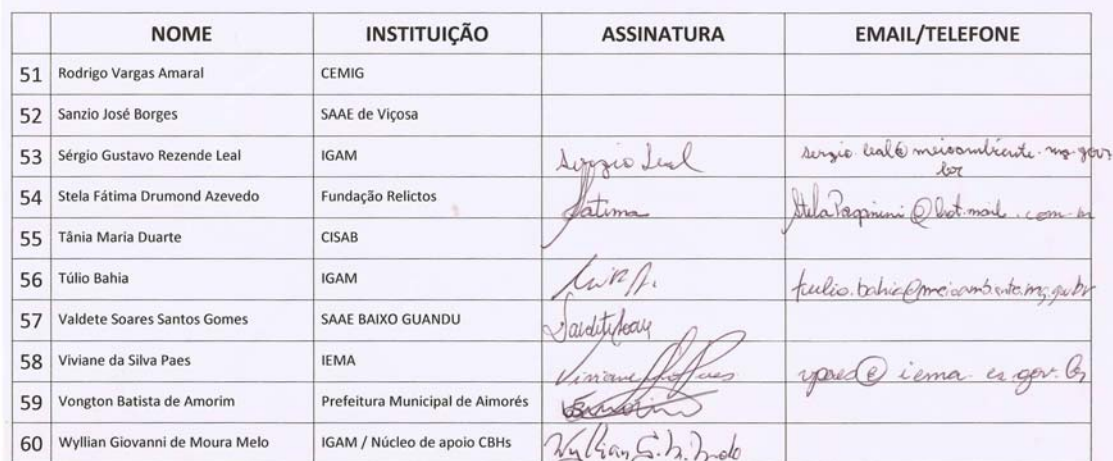 NOME INSTITUIÇÃO ASSINATURA EMAIL/TELEFONE
51 Rodrigo Vargas Amaral CEMIG
52 Sanzio José Borges SAAE de Viçosa
53 Sérgio Gustavo Rezende Leal IGAM Sergio Leal sergio.leal@meioambiente.mg.gov.
br
54 Stela Fátima Drumond Azevedo Fundação Relictos Fatima StelaPaganini@hotmail.com.br
55 Tânia Maria Duarte CISAB
56 Túlio Bahia IGAM tulio.bahia@meioambiente.mg.gov.br
57 Valdete Soares Santos Gomes SAAE BAIXO GUANDU
58 Viviane da Silva Paes IEMA Viviane Paes vpaes@iema.es.gov.br
59 Vongton Batista de Amorim Prefeitura Municipal de Aimorés
60 Wyllian Giovanni de Moura Melo IGAM / Núcleo de apoio CBHs Wyllian G. M. Melo